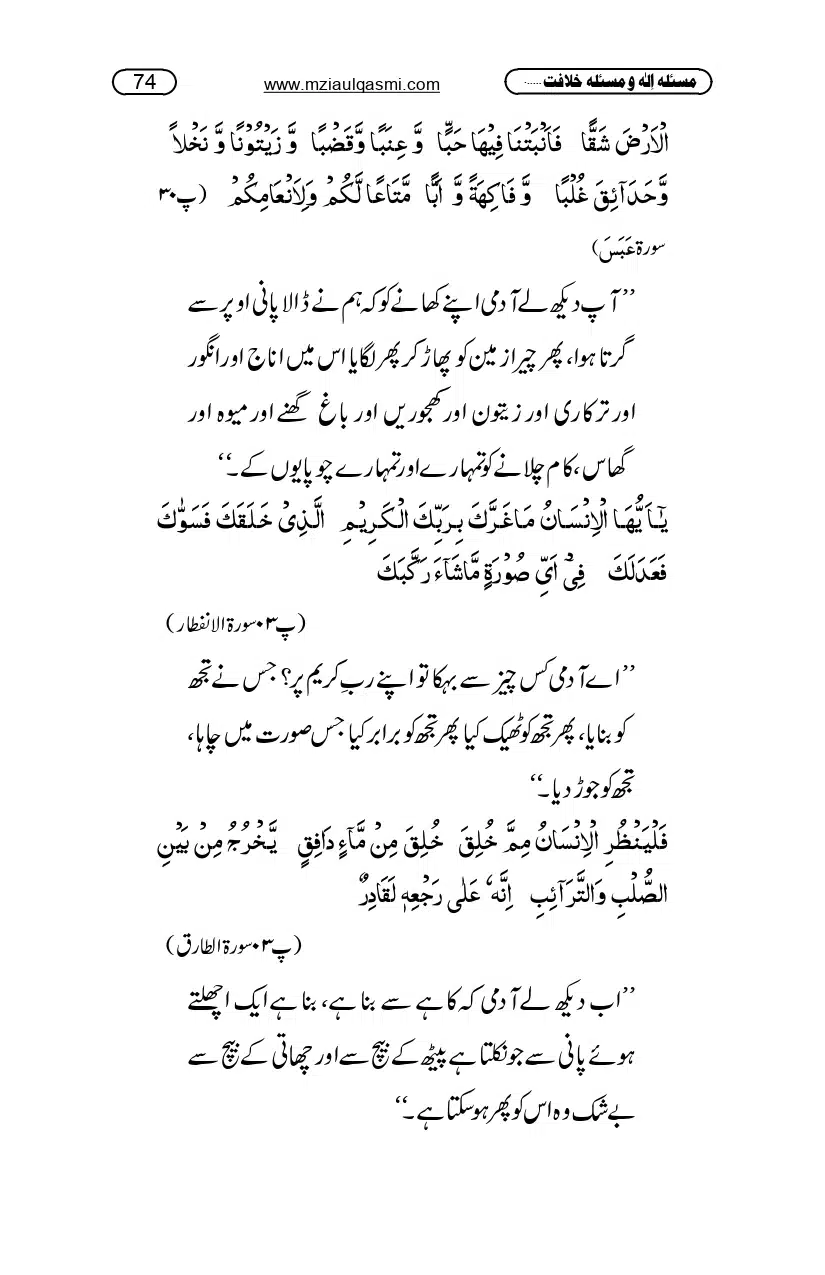 مسئلہ اِلٰہ و مسئلہ خلافت ...... www.mziaulqasmi.com 74
الْاَرْضَ شَقًّا فَاَنْبَتْنَا فِيْهَا حَبًّا وَّ عِنَبًا وَّقَضْبًا وَّ زَيْتُوْنًا وَّ نَخْلاً
وَّحَدَآئِقَ غُلْبًا وَّ فَاكِهَةً وَّ اَبًّا مَّتَاعًا لَّكُمْ وَلِاَنْعَامِكُمْ (پ ۳۰
سورۃ عَبَسَ)
’’آپ دیکھ لے آدمی اپنے کھانے کو کہ ہم نے ڈالا پانی اوپر سے
گرتا ہوا، پھر چیرا زمین کو پھاڑ کر پھر لگایا اس میں اناج اور انگور
اور ترکاری اور زیتون اور کھجوریں اور باغ گھنے اور میوہ اور
گھاس، کام چلانے کو تمہارے اور تمہارے چوپایوں کے۔‘‘
يٰٓـاَ يُّهَـا الْاِنْسَـانُ مَـاغَـرَّكَ بِـرَبِّكَ الْـكَرِيْـمِ الَّـذِىْ خَـلَـقَكَ فَسَـوّٰكَ
فَعَدَلَكَ فِىْٓ اَىِّ صُوْرَةٍ مَّاشَآءَ رَكَّبَكَ
(پ ۰۳ سورۃ الانفطار)
’’اے آدمی کس چیز سے بہکا تو اپنے ربِ کریم پر؟ جس نے تجھ
کو بنایا، پھر تجھ کو ٹھیک کیا پھر تجھ کو برابر کیا جس صورت میں چاہا،
تجھ کو جوڑ دیا۔‘‘
فَلْيَنْظُرِ الْاِنْسَانُ مِمَّ خُلِقَ خُلِقَ مِنْ مَّآءٍ دَافِقٍ يَّخْرُجُ مِنْ بَيْنِ
الصُّلْبِ وَالتَّرَآئِبِ اِنَّهٗ عَلٰى رَجْعِهٖ لَقَادِرٌ
(پ ۰۳ سورۃ الطارق)
’’اب دیکھ لے آدمی کہ کاہے سے بنا ہے، بنا ہے ایک اچھلتے
ہوئے پانی سے جو نکلتا ہے پیٹھ کے بیچ سے اور چھاتی کے بیچ سے
بے شک وہ اس کو پھر ہو سکتا ہے۔‘‘